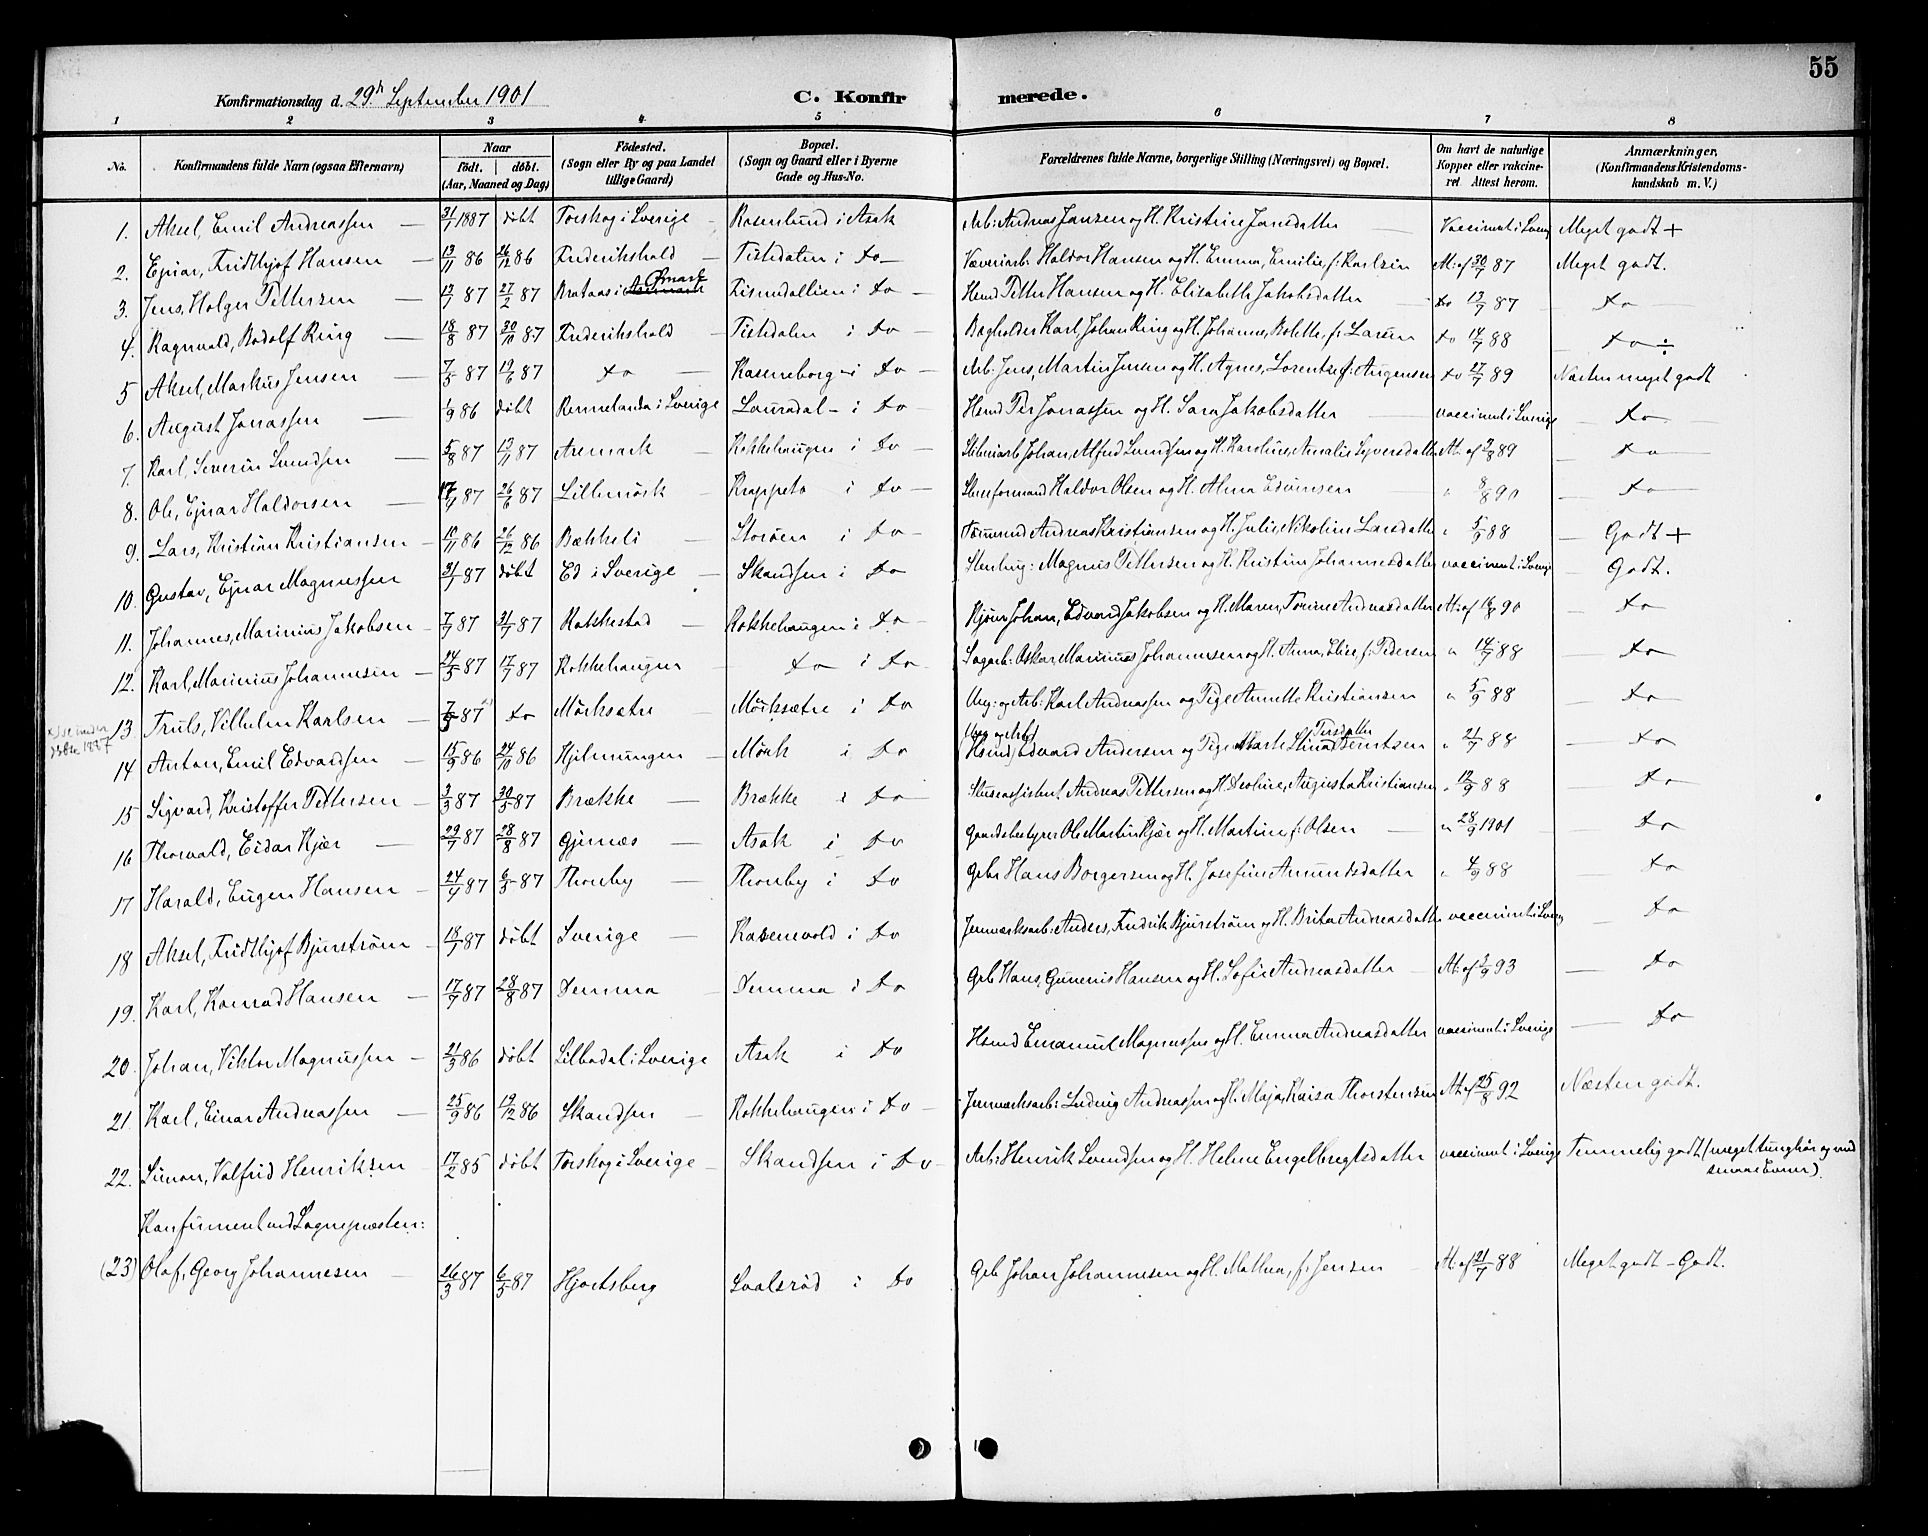 55
Konfirmationsdag d. 29de September 1901 C. Konfirmerede.
1 2 3 4 5 6 7 8
No. Konfirmandens fulde Navn (ogsaa Efternavn) Naar födt. döbt. (Aar, Maaned og Dag) Födested. (Sogn eller By og paa Landet tillige Gaard) Bopæl. (Sogn og Gaard eller i Byerne Gade og Hus-No. Forældrenes fulde Navne, borgerlige Stilling (Næringsvei) og Bopæl. Om havt de naturlige Kopper eller vakcineret Attest herom. Anmærkninger, (Konfirmandens Kristendomskundskab m. V.)
1. Aksel, Emil Andreassen 31/7 1887 döbt Torskog i Sverige Rosenlund i Asak Arb: Andreas Jansen og H. Kristine Jansdatter Vaccineret i Sverig Meget godt +
2. Ejnar, Fridthjof Hansen 13/11 86 26/12 86 Frederikshald Tistedalen i do Væveriarb. Haldor Hansen og H. Emma, Emilie, f: Karlsen At: af 30/7 87 Meget godt.
3. Jens, Holger Pettersen 13/1 87 27/2 87 Brataas i Aremark Ømark Risendallien i do Hsmd Petter Hansen og H. Elisabeth Jakobsdatter do 13/9 87 do
4. Ragnvald, Rodolf Ring 18/8 87 30/10 87 Frederikshald Tistedalen i do Bogholder Karl Johan Ring og H. Johanne, Bolette, f: Larsen do 14/7 88 do ÷
5 Aksel, Markus Jensen 7/5 87 19/6 87 do Kaseneborg i do Arb: Jens, Martin Jensen og H. Agnes, Lorentze f: Augensen do 27/7 89 Næsten meget godt
6. August Jonassen 1/9 86 döbt Rennelanda i Sverige Lauradal i do Hsmd Per Jonassen og H. Sara Jakobsdatter vaccineret i Sverige do
7. Karl, Severin Svendsen 5/8 87 13/11 87 Aremark Kokkehaugen i do Sliberiarb Johan, Alfred Svendsen og H. Karoline, Amalie Syversdatter At. af 2/8 89 do
8. Ole, Ejnar Haldorsen 17/4 87 26/6 87 Lillemörk Krappeto i do Sluseformand Haldor Olsen og H. Alma Edvinsen " 8/8 90 do
9. Lars, Kristian Kristiansen 10/11 86 26/12 86 Bækkeli Storöen i do Tömmermd Andreas Kristiansen og H. Julie, Nikoline Larsdatter " 5/9 88 Godt +
10. Gustav, Ejnar Magnussen 31/1 87 döbt Ed i Sverige Skandsen i do Stenhug: Magnus Pettersen og H. Kristine Johannesdatter vaccineret i Sverige Godt.
11. Johannes, Marinius Jakobsen 7/7 87 31/7 87 Rakkestad Kokkehaugen i do Kjører Johan, Edvard Jakobsen og H. Maren, Torine Andreasdatter At: af 14/8 90 do
12. Karl, Marinius Johannesen 24/5 87 17/7 87 Kokkehaugen do i do Sagarb: Oskar, Marinius Johannesen og H. Anna, Elise, f: Pedersen " 14/7 88 do
13 Truls, Vilhelm Karlsen 7/5 87 do Mörksætre Mörksætre i do Ung: og Arb: Karl Andreassen og Pige Annette Kristiansen " 5/9 88 do
14 Anton, Emil Edvardsen 15/9 86 24/10 86 Hjelmungen Mörk i do (Ung og Arb) Hsmd Edvard Andersen og Pige Marte Stina Persdatter Berntsen " 21/7 88 do
15 Sigvard, Kristoffer Pettersen 3/3 87 30/5 87 Brække Brække i do Sluseassistent Andreas Pettersen og H. Severine, Augusta Kristiansen " 12/9 88 do
16 Thorvald, Eidar Kjær 29/7 87 28/8 87 Gjernæs Asak i do Gaardsbestyrer Ole Martin Kjær og H. Martine, f: Olsen " 28/9 1901 do
17 Harald, Eugen Hansen 24/4 87 6/5 87 Thorsby Thorsby i do Gebr Hans Borgersen og H. Josefine Amundsdatter " 4/9 88 do
18 Aksel, Fridthjof Bjurström 18/7 87 döbt Sverige Kasenevold i do Jernværksarb: Anders, Fredrik Bjurström og H. Brita Andreasdatter vaccineret i Sverig do
19. Karl, Konrad Hansen 17/7 87 28/8 87 Femma Femma i do Gebr Hans, Gunerius Hansen og H. Sofie Andreasdatter At: af 2/9 93 do
20. Johan, Viktor Magnussen 21/3 86 döbt Lilbodal i Sverige Asak i do Hsmd Emanuel Magnussen og H. Emma Andreasdatter vaccineret i Sverige do
21. Karl, Einar Andreassen 25/9 86 19/12 86 Skandsen Kokkehaugen i do Jernværksarb: Ludvig Andreassen og H. Maja, Kaisa Thorstensen At. af 25/8 92 Næsten godt.
22. Simon, Valfrid Henriksen 17/2 85 döbt Torskog i Sverige Skandsen i do Arb: Henrik Svendsen og H. Helene Engelbregtsdatter vaccineret i Sverige Temmelig godt (meget tunghör og med smaae Evner).
Konfirmeret ved Sognepræsten:
(23) Olaf, Georg Johannesen 26/3 87 6/5 87 Hjortsberg Svalsröd i do Gebr Johan Johannesen og H. Mathea, f: Jensen At. af 21/7 88 Meget godt - Godt.